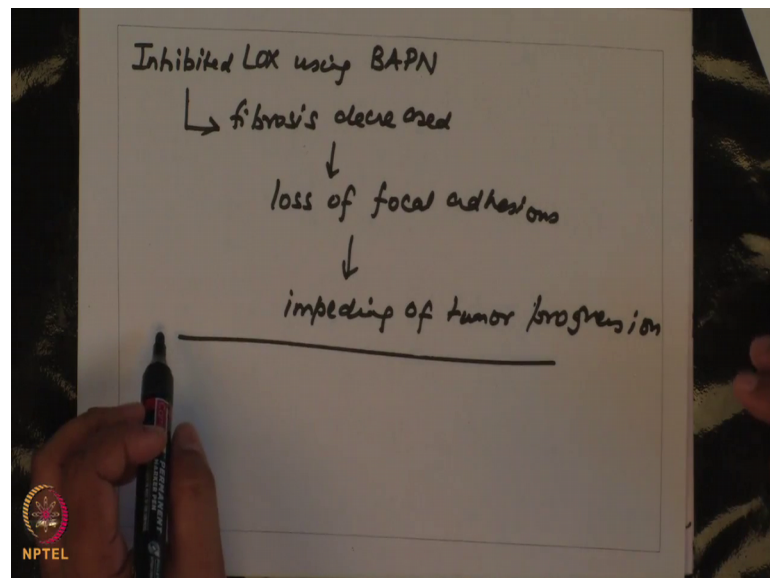 Inhibited LOX using BAPN
fibrosis decreased
loss of focal adhesions
impeding of tumor progression
PERMANENT
NPTEL